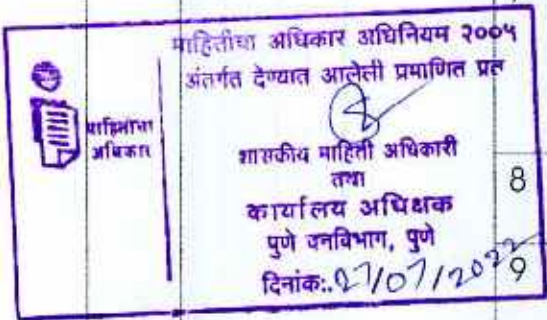 माहितीचा अधिकार अधिनियम २००५
अंतर्गत देण्यात आलेली प्रमाणित प्रत
माहितीचा
अधिकार
शासकीय माहिती अधिकारी
तथा
कार्यालय अधिक्षक
पुणे वनविभाग, पुणे
दिनांक:.27/07/2022
8
9